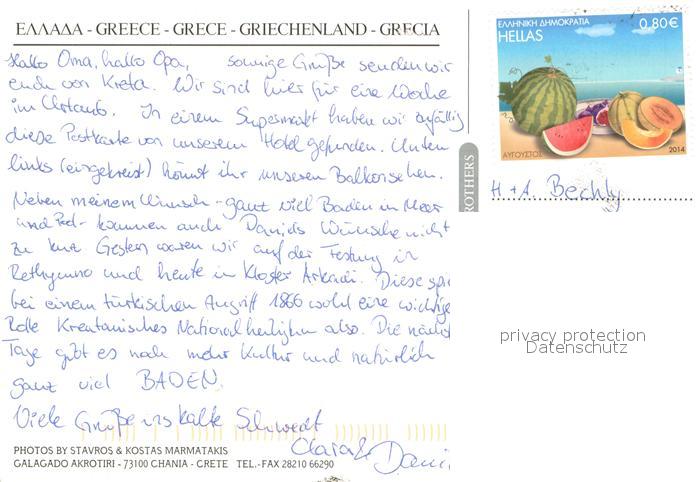 ΕΛΛΑΔΑ - GREECE - GRECE - GRIECHENLAND - GRECIA
Hallo Oma, hallo Opa, sonnige Grüße senden wir
euch von Kreta. Wir sind hier für eine Woche
im Urlaub. In einem Supermarkt haben wir zufällig
diese Postkarte von unserem Hotel gefunden. Unten
links (eingekreist) könnt ihr unseren Balkon sehen.
Neben meinem Wunsch - ganz viel Baden im Meer
und Pool - kommen auch Daniels Wünsche nicht
zu kurz. Gestern waren wir auf der Festung in
Rethymno und heute in Kloster Arkadi. Diese spi
bei einem türkischen Angriff 1866 wohl eine wichtige
Rolle Kretanisches Nationalheiligtum also. Die näch
Tage gibt es noch mehr Kultur und natürlich
ganz viel BADEN.
Viele Grüße ins kalte Schwedt
Clara & Dani
PHOTOS BY STAVROS & KOSTAS MARMATAKIS
GALAGADO AKROTIRI - 73100 CHANIA - CRETE TEL.-FAX 28210 66290
ROTHERS
ΕΛΛΗΝΙΚΗ ΔΗΜΟΚΡΑΤΙΑ 0,80€
HELLAS
ΑΥΓΟΥΣΤΟΣ 2014
H. + A. Bechly
privacy protection
Datenschutz